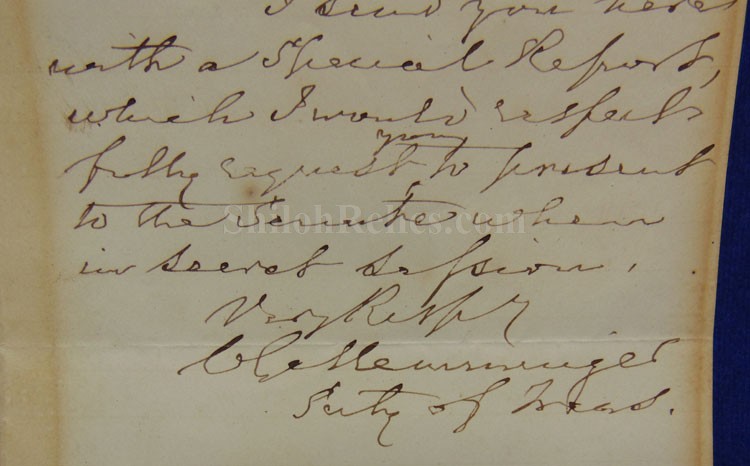 I send you here
with a Special Report,
which I would respect
fully request you to present
to the Senate when
in secret session.
Very Respy
C G Memminger
Secty of Treas.
ShilohRelics.com